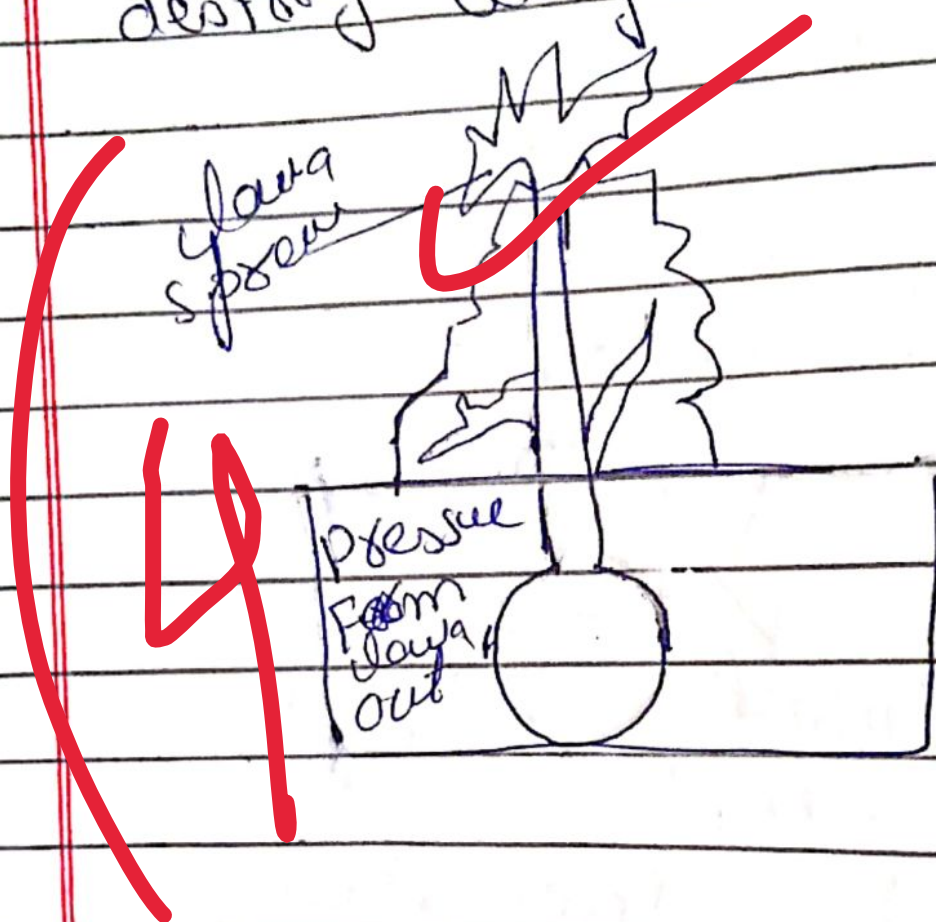 lava
spreau
4
Pressue
Foom
lava
out